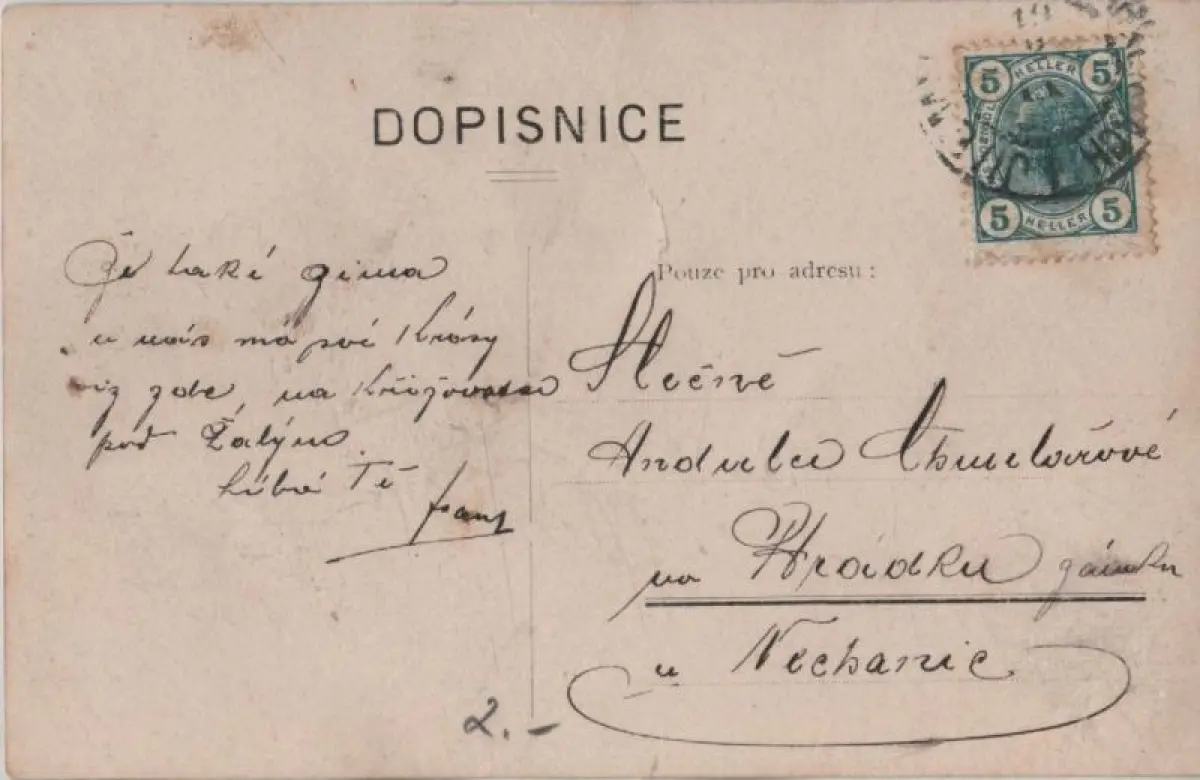 DOPISNICE
Že také zima
u nás má své krásy
viz zde, na Křižovatce
pod Žalým.
Líbá Tě
Franz
Pouze pro adresu:
Slečně
Andulce Chmelařové
na Hrádku zámku
u Nechanic
2.-
5 HELLER 5
5 HELLER 5